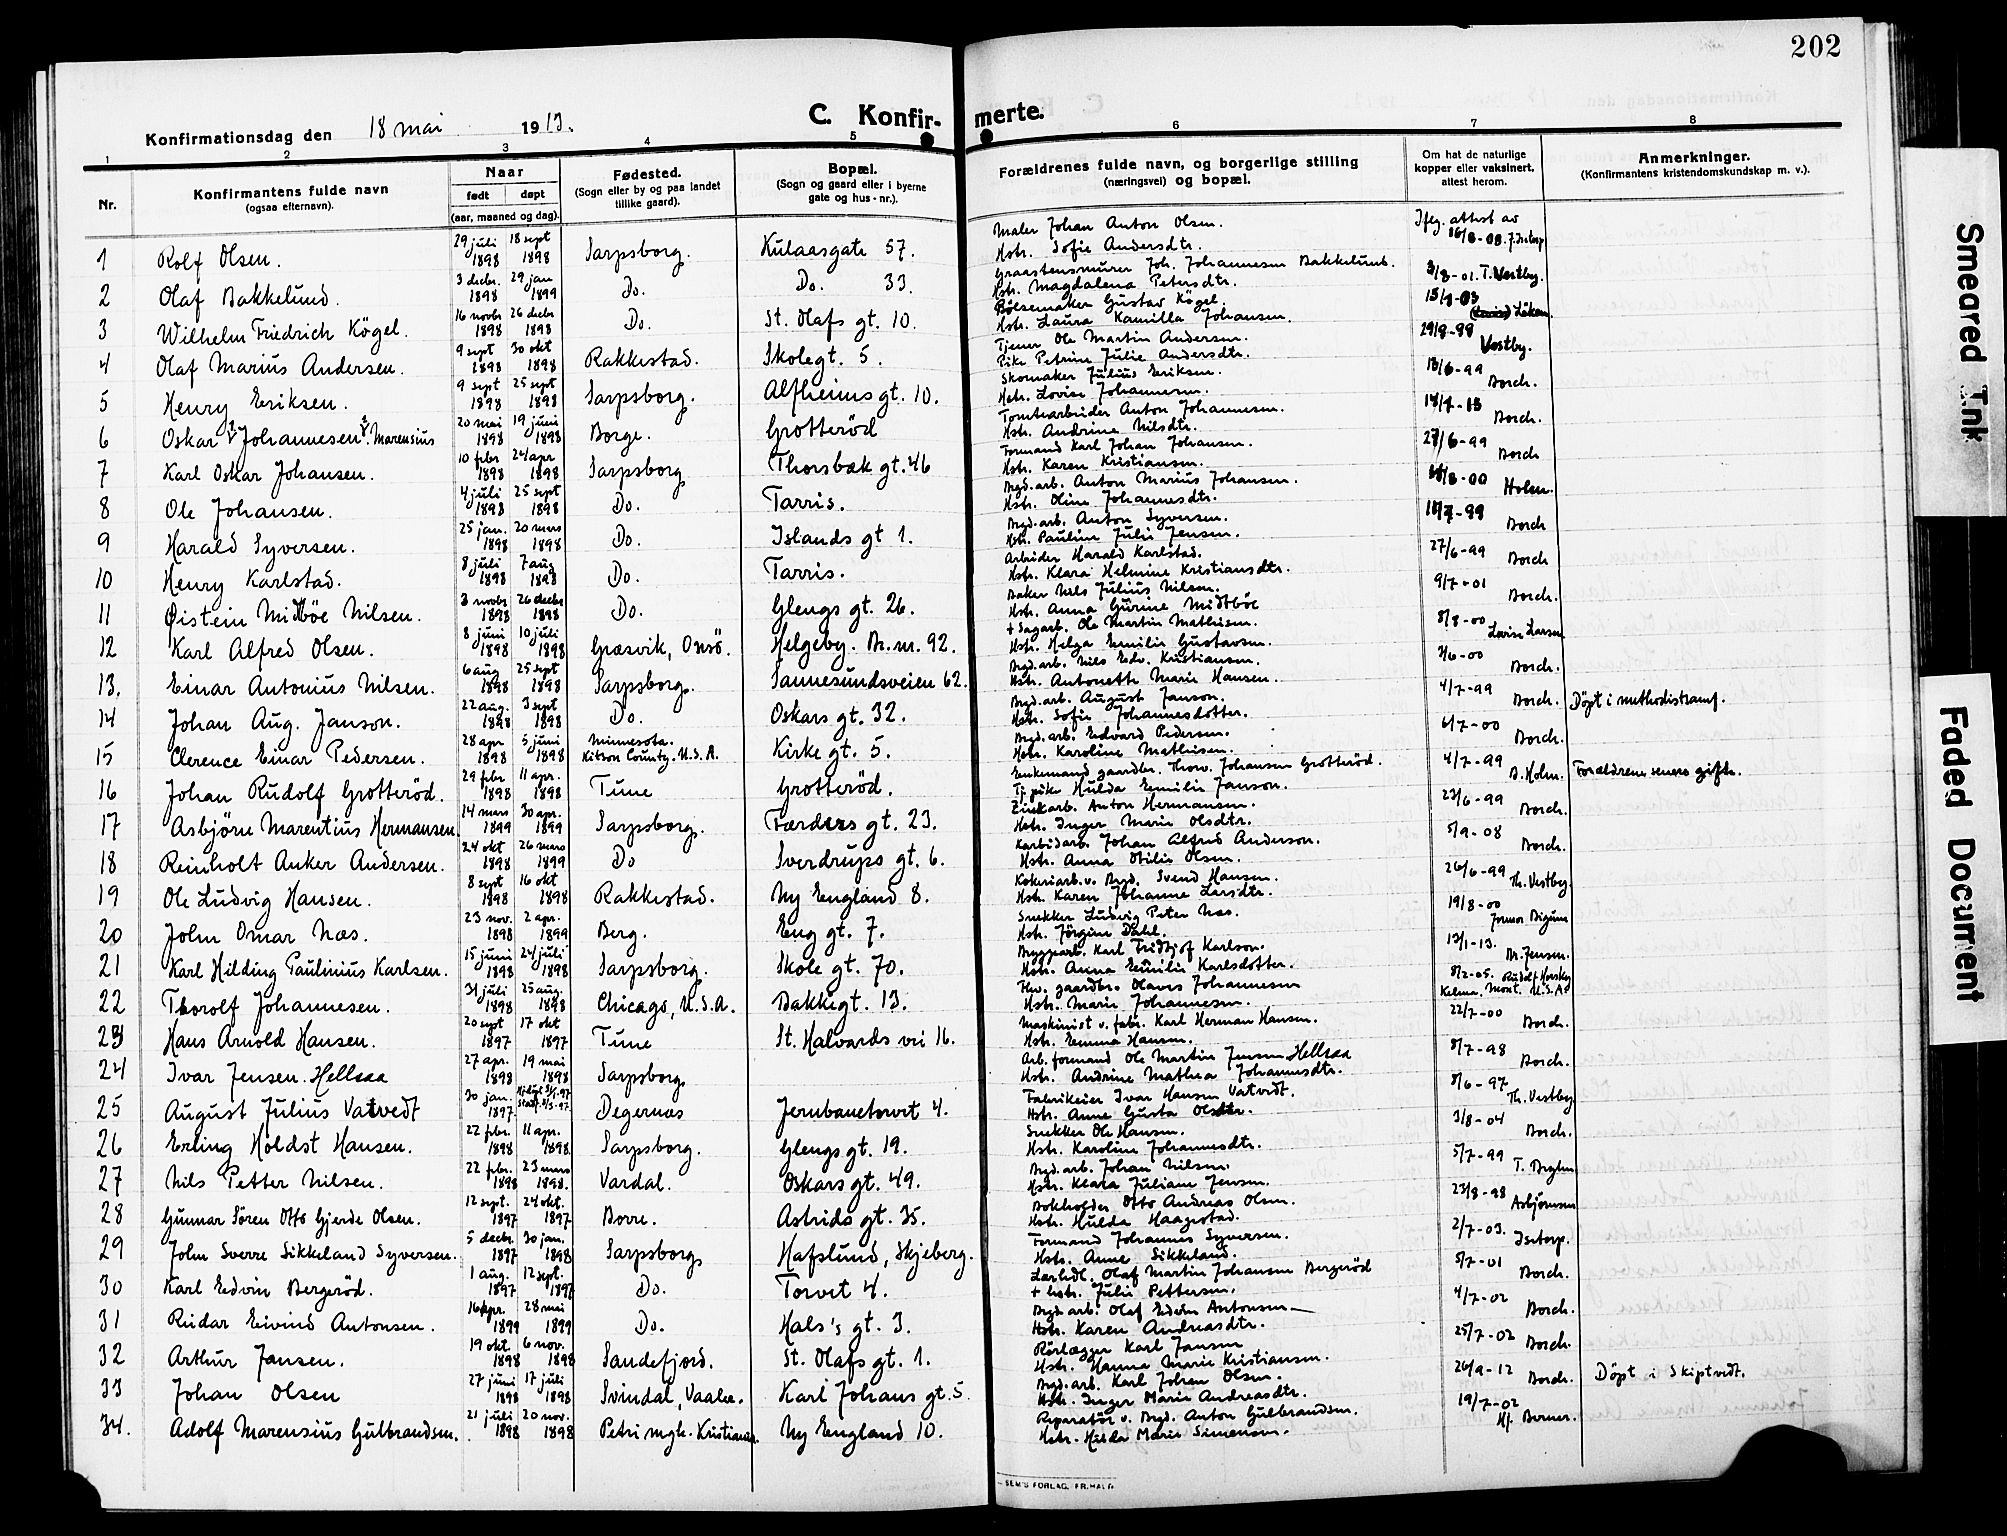 202
C. Konfirmerte.
Konfirmationsdag den 18 mai 1913.
1 2 3 4 5 6 7 8
Nr.
Konfirmantens fulde navn
(ogsaa efternavn).
Naar
født døpt
(aar, maaned og dag).
Fødested.
(Sogn eller by og paa landet
tillike gaard).
Bopæl.
(Sogn og gaard eller i byerne
gate og hus-nr.).
Forældrenes fulde navn, og borgerlige stilling
(næringsvei) og bopæl.
Om hat de naturlige
kopper eller vaksinert,
attest herom.
Anmerkninger.
(Konfirmantens kristendomskundskap m. v.).
1 Rolf Olsen. 29 juli 1898 18 sept 1898 Sarpsborg. Kulaasgate 57. Maler Johan Anton Olsen. Hstr. Sofie Andersdtr. Iflg. attest av
2 Olaf Bakkelund. 3 decbr. 1898 29 jan 1899 Do. Do. 33. Graastensmurer Joh. Johannesen Bakkelund. Hstr. Magdalena Petersdtr. 3/8-01. T. Vestby.
3 Wilhelm Friedrich Kögel. 16 novbr 1898 26 decbr 1898 Do. St. Olafs gt. 10. Pølsemaker Gustav Kögel. Hstr. Laura Kamilla Johansen. Løken.
4 Olaf Marius Andersen. 9 sept 1898 30 okt 1898 Rakkestad. Skolegt. 5. Tjener Ole Martin Andersen. Pike Petrine Julie Andersdtr. 29/8-99 Vestby.
5 Henry Eriksen. 9 sept 1898 25 sept 1898 Sarpsborg. Alfheims gt. 10. Skomaker Julius Eriksen. Hstr. Lovise Johannesen. 13/6-99 Borch.
6 Oskar Johannesen. Marensius 20 mai 1898 19 juni 1898 Borge. Grotterød Tomtearbeider Anton Johannesen. Hstr. Andrine Nilsdtr. 14/7-13 Borch.
7 Karl Oskar Johansen. 10 febr 1898 24 apr 1898 Sarpsborg Thorsbæk gt. 46 Formand Karl Johan Johansen. Hstr. Karen Kristiansen. 27/6-99 Borch
8 Ole Johansen. 4 juli 1898 25 sept 1898 Do. Tarris. Bryd.arb. Anton Marius Johansen. Hstr. Oline Johannesdtr. Holm.
9 Harald Syversen. 25 jan. 1898 20 mars 1898 Do. Islands gt 1. Bryd.arb. Anton Syversen. Hstr. Pauline Julie Jensen. Borch
10 Henry Karlstad. 8 juli 1898 7 aug 1898 Do. Tarris. Arbeider Harald Karlstad. Hstr. Klara Helmine Kristiansdtr. 27/6-99 Borch
11 Øistein Midtbøe Nilsen. 3 novbr 1898 26 decbr 1898 Do. Glengs gt. 26. Baker Nils Julius Nilsen. Hstr. Anna Gurine Midtbøe 9/7-01 Borch.
12 Karl Alfred Olsen. 8 juni 1898 10 juli 1898 Græsvik, Onsö. Helgeby. Br. nr. 92. + Sagarb. Ole Martin Mathisen. Hstr. Helga Emilie Gustavsen. 8/8-00 Lovise Larsen
13. Einar Antonius Nilsen. 6 aug 1898 25 sept 1898 Sarpsborg. Sannesundsveien 62. Bryd.arb. Nils Edv. Kristiansen. Hstr. Antonette Marie Hansen. Borch.
14 Johan Aug. Janson. 22 aug. 1898 3 sept 1898 Do. Oskars gt. 32. Bryd.arb. August Janson. Hstr. Sofie Johannesdotter. 4/7-99 Borch. Døpt i methodistsamf.
15 Clerence Einar Pedersen. 28 apr 1898 5 juni 1898 Minnesota. Kitson County. U.S.A. Kirke gt. 5. Bryd.arb. Edvard Pedersen. Hstr. Karoline Mathisen. 6/7-00 Borch.
16 Johan Rudolf Grotterød. 29 febr 1898 11 apr. 1898 Tune Grotterød. Enkemand gaardbr. Thorv. Johansen Grotterød. Tj. pike Hulda Emilie Janson. 4/7-99 B. Holm. Forældrene senere gifte.
17 Asbjørn Marentius Hermansen. 14 mars 1899 30 apr. 1899 Sarpsborg. Færders gt. 23. Zinkarb. Anton Hermansen. Hstr. Inger Marie Olsdtr. 23/6-99 Borch.
18 Reinholt Anker Andersen. 24 okt 1898 26 mars 1899 Do Sverdrups gt. 6. Karbidarb. Johan Alfred Anderson. Hstr. Anna Otilie Olsen. 5/9-08 Borch.
19 Ole Ludvig Hansen. 8 sept 1898 16 okt 1898 Rakkestad. Ny England 8. Kokeriarb. v. Bryd. Svend Hansen. Hstr. Karen Johanne Larsdtr. 26/6-99 Th. Vestby.
20 John Omar Næs. 23 nov. 1898 2 apr. 1899 Berg. Eng gt. 7. Snekker Ludvig Peter Næs. Hstr. Jörgine Dahl. 19/8-00
21 Karl Hilding Paulinius Karlsen. 15 juni 1898 24 juli 1898 Sarpsborg. Skole gt. 70. Bryggearb. Karl Fridtjof Karlson. Hstr. Anna Emilie Karlsdotter. 13/1-13. Br. Jensen.
22 Thorolf Johannesen. 31 juli 1898 25 aug. 1898 Chicago, U.S.A. Bakkegt. 13. Fhv. gaardbr. Olaves Johannesen Hstr. Marie Johannesen. 8/2-05. Rudolf Horsky Helena. Mont. U.S.A.
23 Hans Arnold Hansen. 20 sept 1897 17 okt 1897 Tune St. Halvards vei 16. Maskinist v. fabr. Karl Herman Hansen. Hstr. Emma Hansen. 22/7-00 Borch.
24 Ivar Jensen. Hellsaa 27 apr. 1898 19 mai 1898 Sarpsborg Arb. formand Ole Martin Jensen Hellsaa Hstr. Andrine Mathea Johannesdtr. 8/7-98 Borch.
25 August Julius Vatvedt 30 jan. 1897. Degernæs Jernbanetorvet 4. Fabrikeier Ivar Hansen Vatvedt. Hstr. Anne Gusta Olsdtr. 8/6-97 Th. Vestby
26 Erling Holdst Hansen. 22 febr. 1898 11 apr. 1898. Sarpsborg. Glengs gt. 19. Snekker Ole Hansen. Hstr. Karoline Johannesdtr. 3/8-04 Borch.
27 Nils Petter Nilsen. 22 febr. 1898 23 mars 1898. Vardal. Oskars gt. 49. Bryd.arb. Johan Nilsen. Hstr. Klara Juliane Jensen. 5/7-99
28 Gunnar Sören Otto Gjerde Olsen. 12 sept. 1897 24 okt. 1897 Borre. Astrids gt. 35. Bokholder Otto Andreas Olsen. Hstr. Hulda Haagestad. 23/8-98 Asbjørnsen
29 John Sverre Sikkeland Syversen. 5 decbr. 1897 30 jan. 1898 Sarpsborg Hafslund, Skjeberg. Formand Johannes Syversen. Hstr. Anne Sikkeland. 2/7-03. Isetorp.
30 Karl Edvin Bergerød. 1 aug. 1897 12 sept. 1897 Do. Torvet 4. Lærhdl. Olaf Martin Johansen Bergerød + hstr. Julie Pettersen. 5/7-01 Borch.
31 Reidar Eivind Antonsen. 16 apr. 1899 28 mai 1899 Do. Hals's gt. 3. Bryd arb. Olaf Edvin Antonsen Hstr. Karen Andreasdtr. 4/7-02 Borch.
32 Arthur Jansen. 19 okt. 1898 6 nov. 1898 Sandefjord. St. Olafs gt. 1. Rørlægger Karl Jansen Hstr. Hanna Marie Kristiansen. 25/7-02 Borch.
33 Johan Olsen 27 juni 1898 17 juli 1898 Svindal, Vaaler. Karl Johans gt. 5 Bryd.arb. Karl Johan Olsen. Hstr. Inger Marie Andreasdtr. 26/9-12 Borch. Döpt i Skiptvedt.
34. Adolf Marensius Gulbrandsen. 21 juli 1898 20 nov. 1898 Petri mgh. Kristiania. Ny England 10. Reparatør v. Bryd. Anton Gulbrandsen. Hstr. Hilda Marie Simensen. 19/7-02 Hj. Berner.
SEM'S FORLAG, FR.HALD.
Smeared Ink
Faded Document